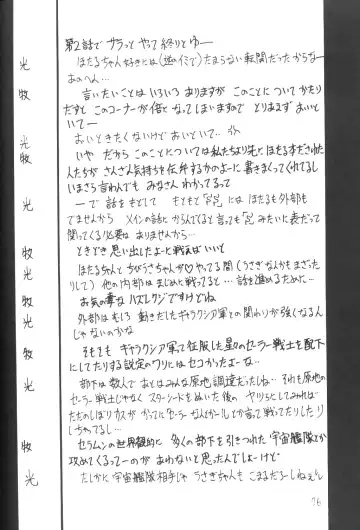 第2話で サラっと やって 終りとゆー
光 ほたるちゃん好きには(逆イミで)たまらない転開だったからなー
あのへん…
牧 言いたいことは いろいろ ありますが このことについて かたり
だすと このコーナーが倍と なってしまいますので とりあえず おいと
いて―
光 おいときたくないけど あいといて..
牧 いや だから このことについては 私たちより先に ほたる本ださ
人たちが さんざん気持ちを 伝弁するかのよーに 書きまくってくれてるし
いまさら言わんでも みなさん わかってるって
光 ―で 話を もどして もともと には ほたるも外部も
でてませんから メインの話とか からんでくると言っても みたいに 表だって
関ってくる必要は ありませんから…
牧 ときどき 思い出したよーに 戦えば いいと
光 ほたるちゃんと ちびうさちゃんが♡やってる間 (うさぎなんかも まざった
りして) 他の内部は まじめに戦ってると… 話を進めるために…
牧 お気の毒な ハズレクジですけどね
光 外部は むしろ 動きだしたギャラクシア軍との関わりが 強くなるん
じゃないのかな
牧 そもそも ギャラクシア軍って 征服した星々の セーラー戦士を 配下
にしてたりする設定の ワリには セコかったよーな…
光 部下は数人で あとは みんな 原地調達だったしね… それも原地の
セーラー戦士じゃなく スターシードを ぬいた後の ヤツらにしてみれば
ただのしぼりカスが かってに セーラーなんとかーとか言って 戦ってたりしたり
しちゃってるし…
牧 セラムンの世界観的に 多くの部下を 引きつれた 宇宙艦隊とか
攻めてくるってーのが あわないと 思ったんでしょーけど
光 たしかに 宇宙艦隊相手じゃ うさぎちゃんも こまるだろーしねぇ
76